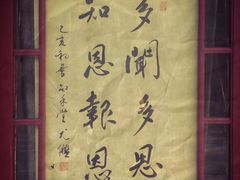 多聞多思
知恩報恩
己亥初春